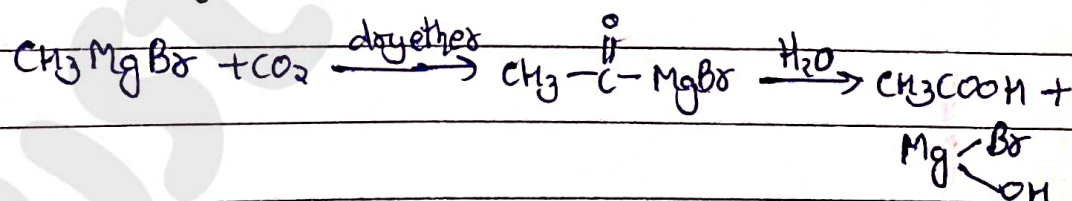 CH3MgBr + CO2 dry ether → CH3-C(=O)-MgBr H2O → CH3COOH +
Mg<Br
OH